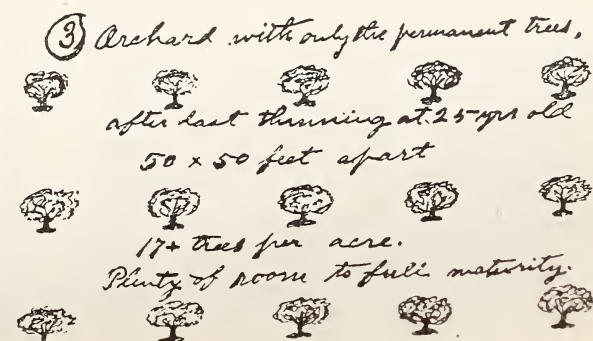 ③ Orchard with only the permanent trees,
after last thinning at 25 yrs old
50 x 50 feet apart
17+ trees per acre.
Plenty of room to full maturity.